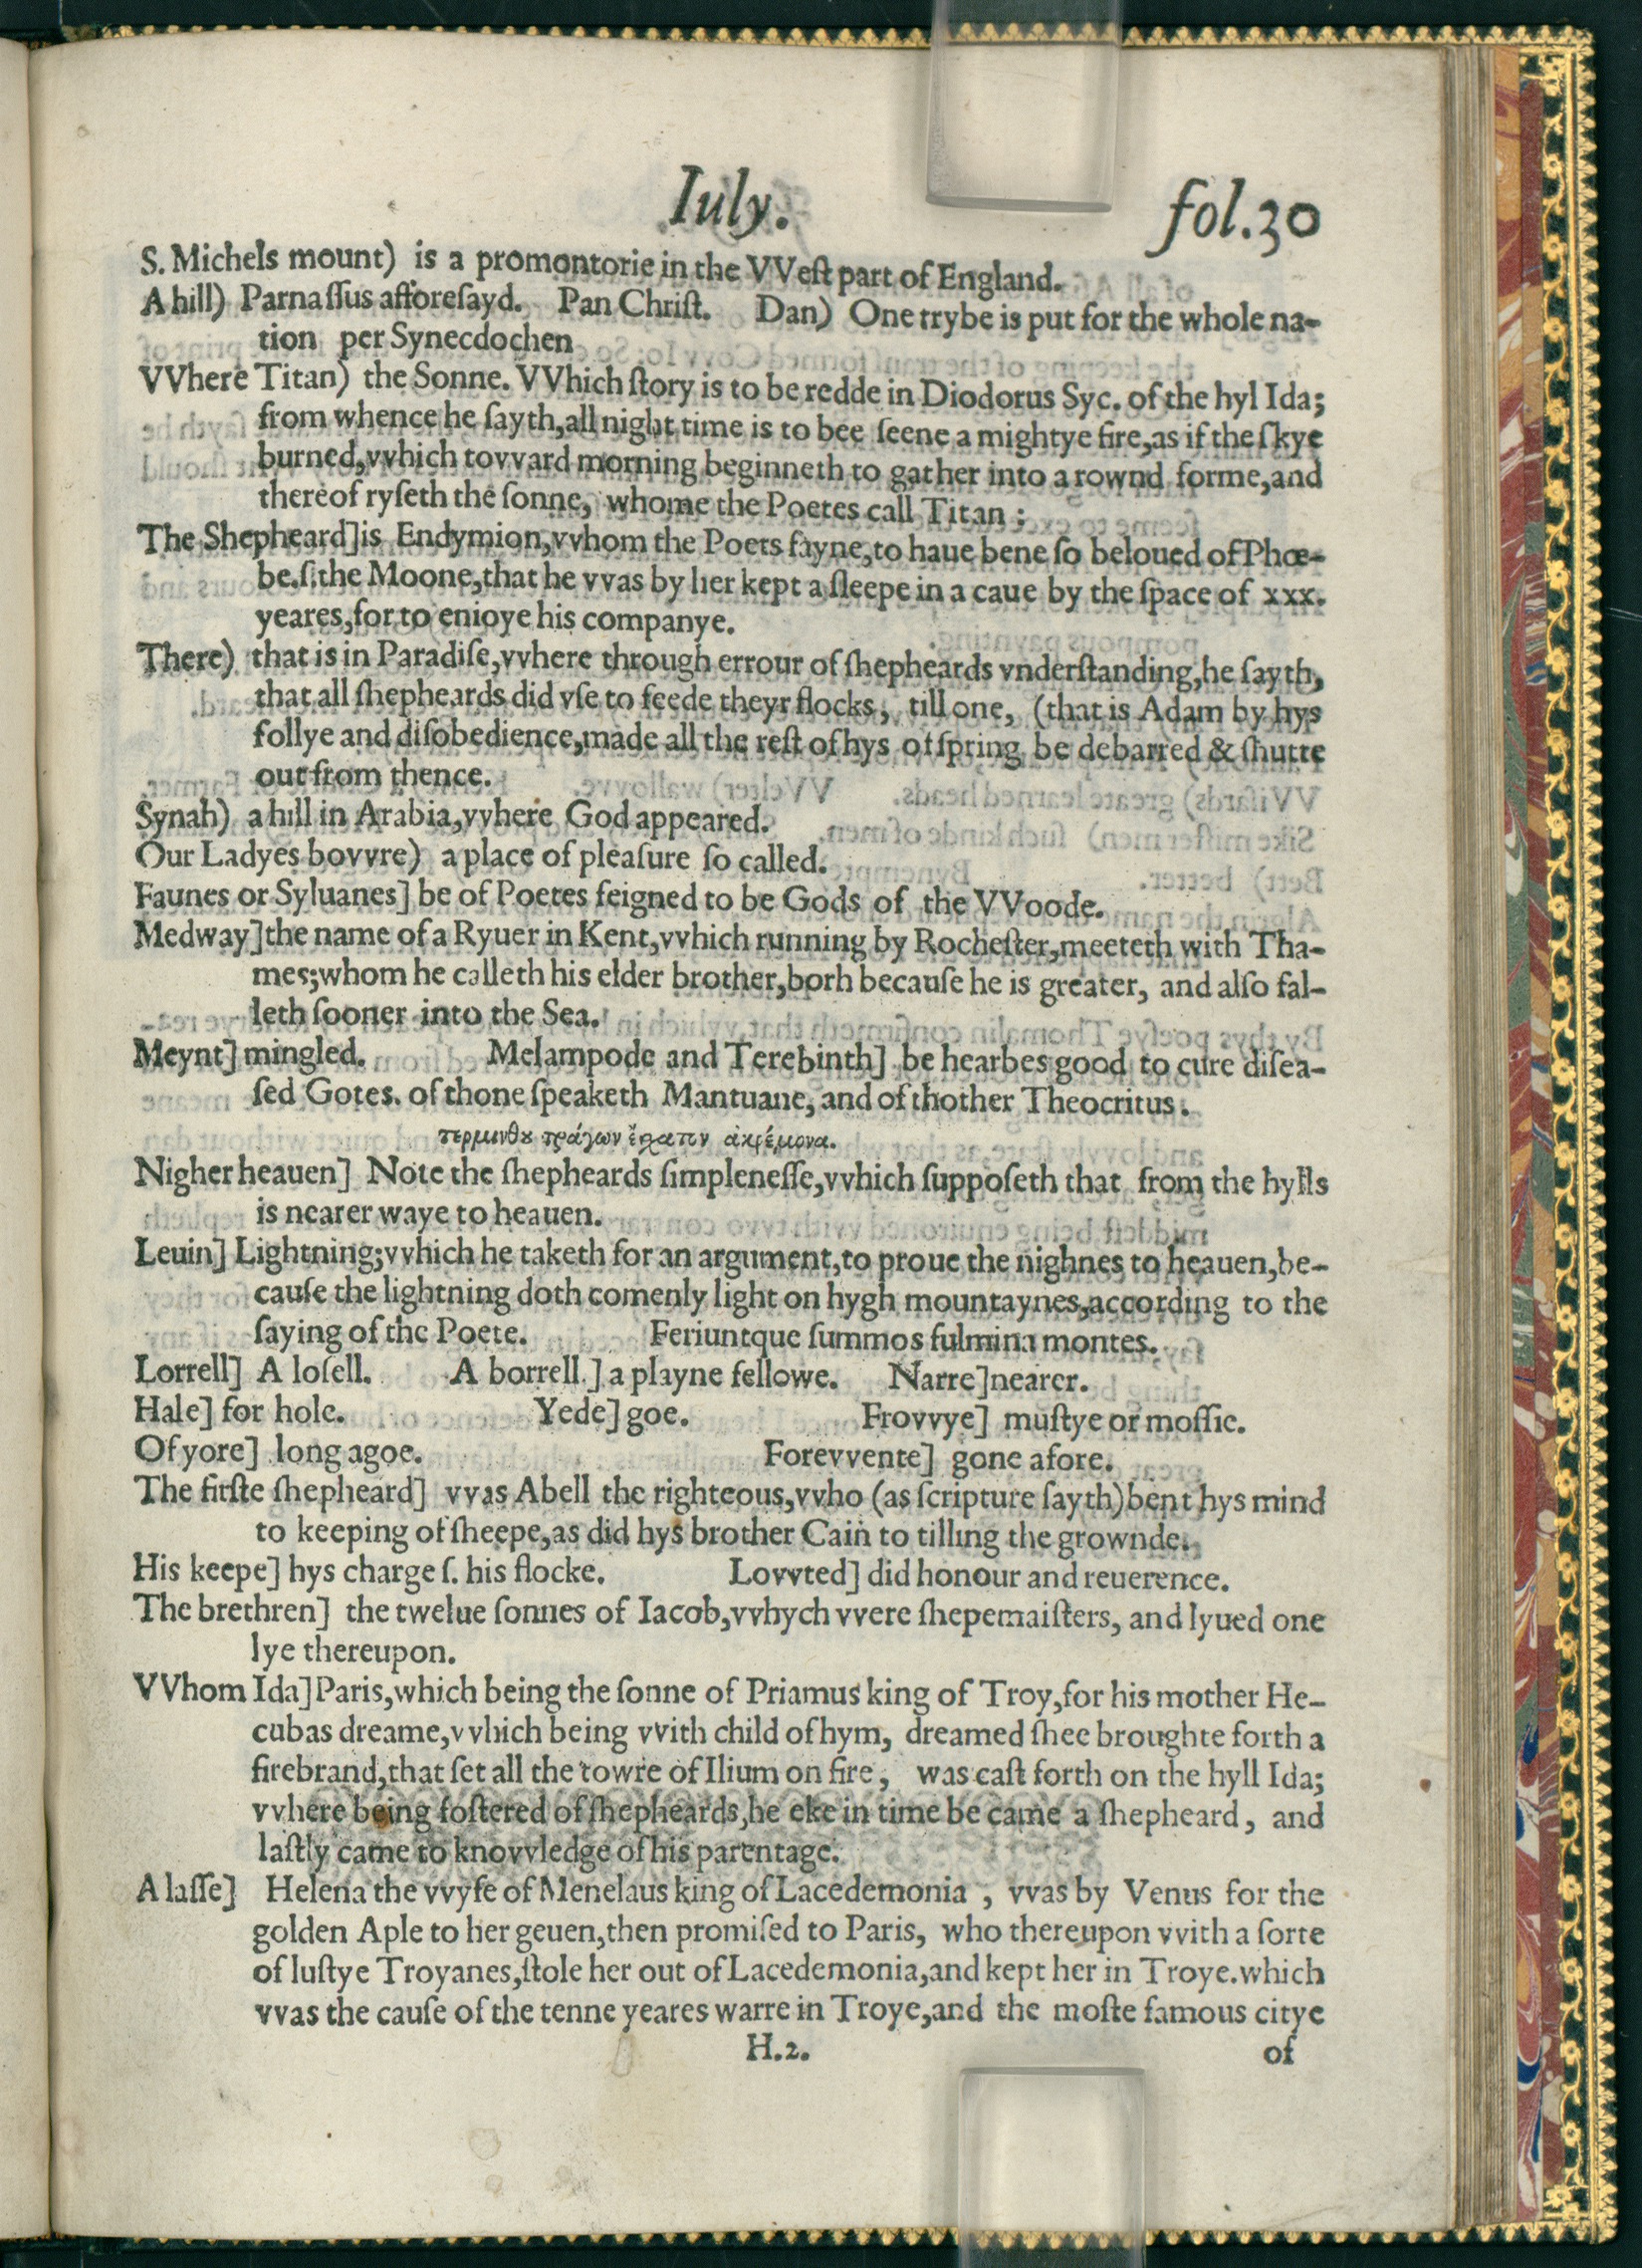 Iuly. fol.30
S. Michels mount) is a promontorie in the VVeſt part of England.
A hill) Parnaſſus afforeſayd. Pan Chriſt. Dan) One trybe is put for the whole na-
tion per Synecdochen
VVhere Titan) the Sonne. VVhich ſtory is to be redde in Diodorus Syc. of the hyl Ida;
from whence he ſayth,all night time is to bee ſeene a mightye fire,as if the ſkye
burned,vvhich tovvard morning beginneth to gather into a rownd forme,and
thereof ryſeth the ſonne, whome the Poetes call Titan :
The Shepheard]is Endymion,vvhom the Poets fayne,to haue bene ſo beloued of Phœ-
be.ſ.the Moone,that he vvas by her kept a ſleepe in a caue by the ſpace of xxx.
yeares,for to enioye his companye.
There) that is in Paradiſe,vvhere through errour of ſhepheards vnderſtanding,he ſayth,
that all ſhepheards did vſe to feede theyr flocks, till one, (that is Adam by hys
follye and diſobedience,made all the reſt of hys ofſpring be debarred & ſhutte
out from thence.
Synah) a hill in Arabia,vvhere God appeared.
Our Ladyes bovvre) a place of pleaſure ſo called.
Faunes or Syluanes] be of Poetes feigned to be Gods of the VVoode.
Medway]the name of a Ryuer in Kent,vvhich running by Rocheſter,meeteth with Tha-
mes;whom he calleth his elder brother,both because he is greater, and alſo fal-
leth ſooner into the Sea.
Meynt] mingled. Melampode and Terebinth] be hearbes good to cure diſea-
ſed Gotes. of thone ſpeaketh Mantuane, and of thother Theocritus.
τερμινθȣ τράγων ἔχατον ἀκρέμονα.
Nigher heauen] Note the ſhepheards ſimpleneſſe,vvhich ſuppoſeth that from the hylls
is nearer waye to heauen.
Leuin] Lightning;vvhich he taketh for an argument,to proue the nighnes to heauen,be-
cauſe the lightning doth comenly light on hygh mountaynes,according to the
ſaying of the Poete. Feriuntque ſummos fulmina montes.
Lorrell] A loſell. A borrell.] a playne fellowe. Narre]nearer.
Hale] for hole. Yede] goe. Frovvye] muſtye or moſſie.
Of yore] long agoe. Forevvente] gone afore.
The firſte ſhepheard] vvas Abell the righteous,vvho (as ſcripture ſayth)bent hys mind
to keeping of ſheepe,as did hys brother Cain to tilling the grownde.
His keepe] hys charge ſ. his flocke. Lovvted] did honour and reuerence.
The brethren] the twelue ſonnes of Iacob,vvhych vvere ſhepemaiſters, and lyued one
lye thereupon.
VVhom Ida]Paris,which being the ſonne of Priamus king of Troy,for his mother He-
cubas dreame,vvhich being vvith child of hym, dreamed ſhee broughte forth a
firebrand,that ſet all the towre of Ilium on fire, was caſt forth on the hyll Ida;
vvhere being foſtered of ſhepheards,he eke in time be came a ſhepheard, and
laſtly came to knovvledge of his parentage.
A laſſe] Helena the vvyfe of Menelaus king of Lacedemonia , vvas by Venus for the
golden Aple to her geuen,then promiſed to Paris, who thereupon vvith a ſorte
of luſtye Troyanes,ſtole her out of Lacedemonia,and kept her in Troye.which
vvas the cauſe of the tenne yeares warre in Troye,and the moſte famous citye
H.2. of